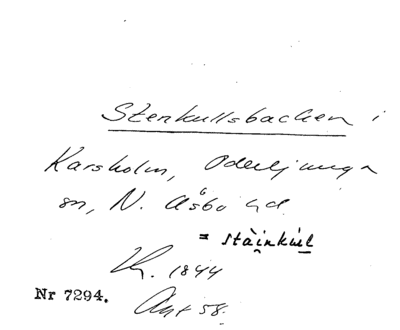 Stenkullsbacken i
Karsholm, Oderljunga
sn, N. Åsbo hd.
= stàinkùl
Kr. 1844
Ant 58.
Nr 7294.